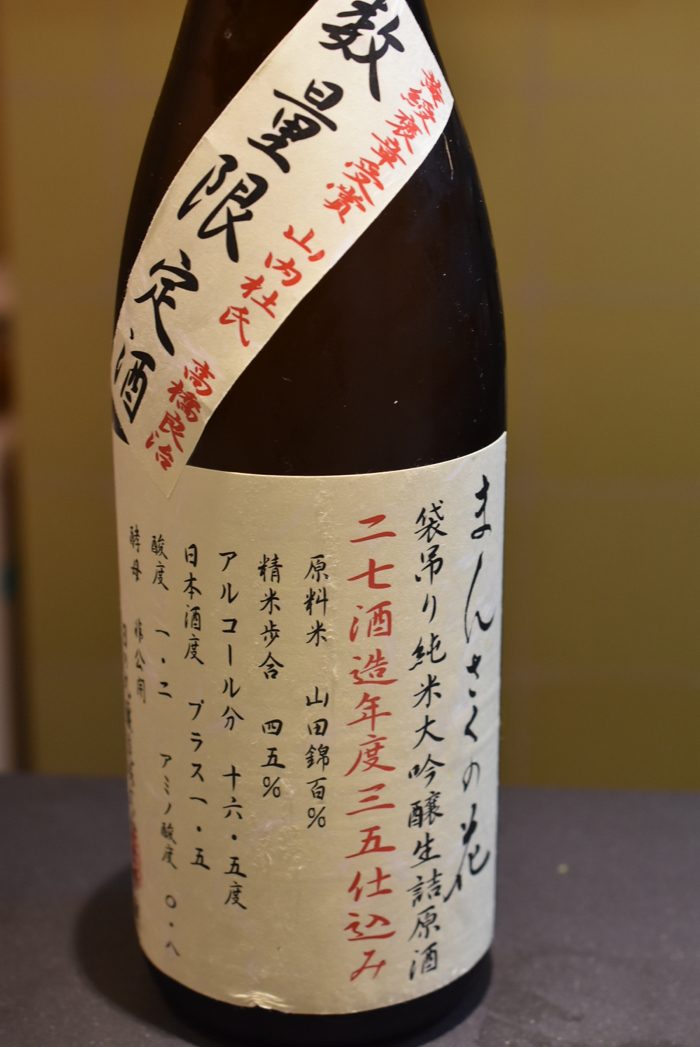 数量限定酒
黄綬褒章受賞 山内杜氏 高橋良治
まんさくの花
袋吊り純米大吟醸生詰原酒
二七酒造年度三五仕込み
原料米 山田錦百%
精米歩合 四五%
アルコール分 十六・五度
日本酒度 プラス一・五
酸度 一・二 アミノ酸度 〇・八
酵母 非公開